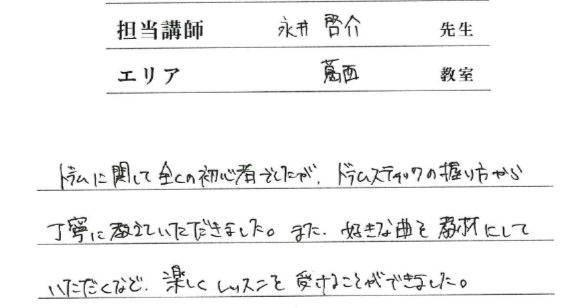 担当講師 永井 啓介 先生
エリア 葛西 教室
ドラムに関して全くの初心者でしたが、ドラムスティックの握り方から
丁寧に教えていただきました。また、好きな曲を教材にして
いただくなど、楽しくレッスンを受けることができました。